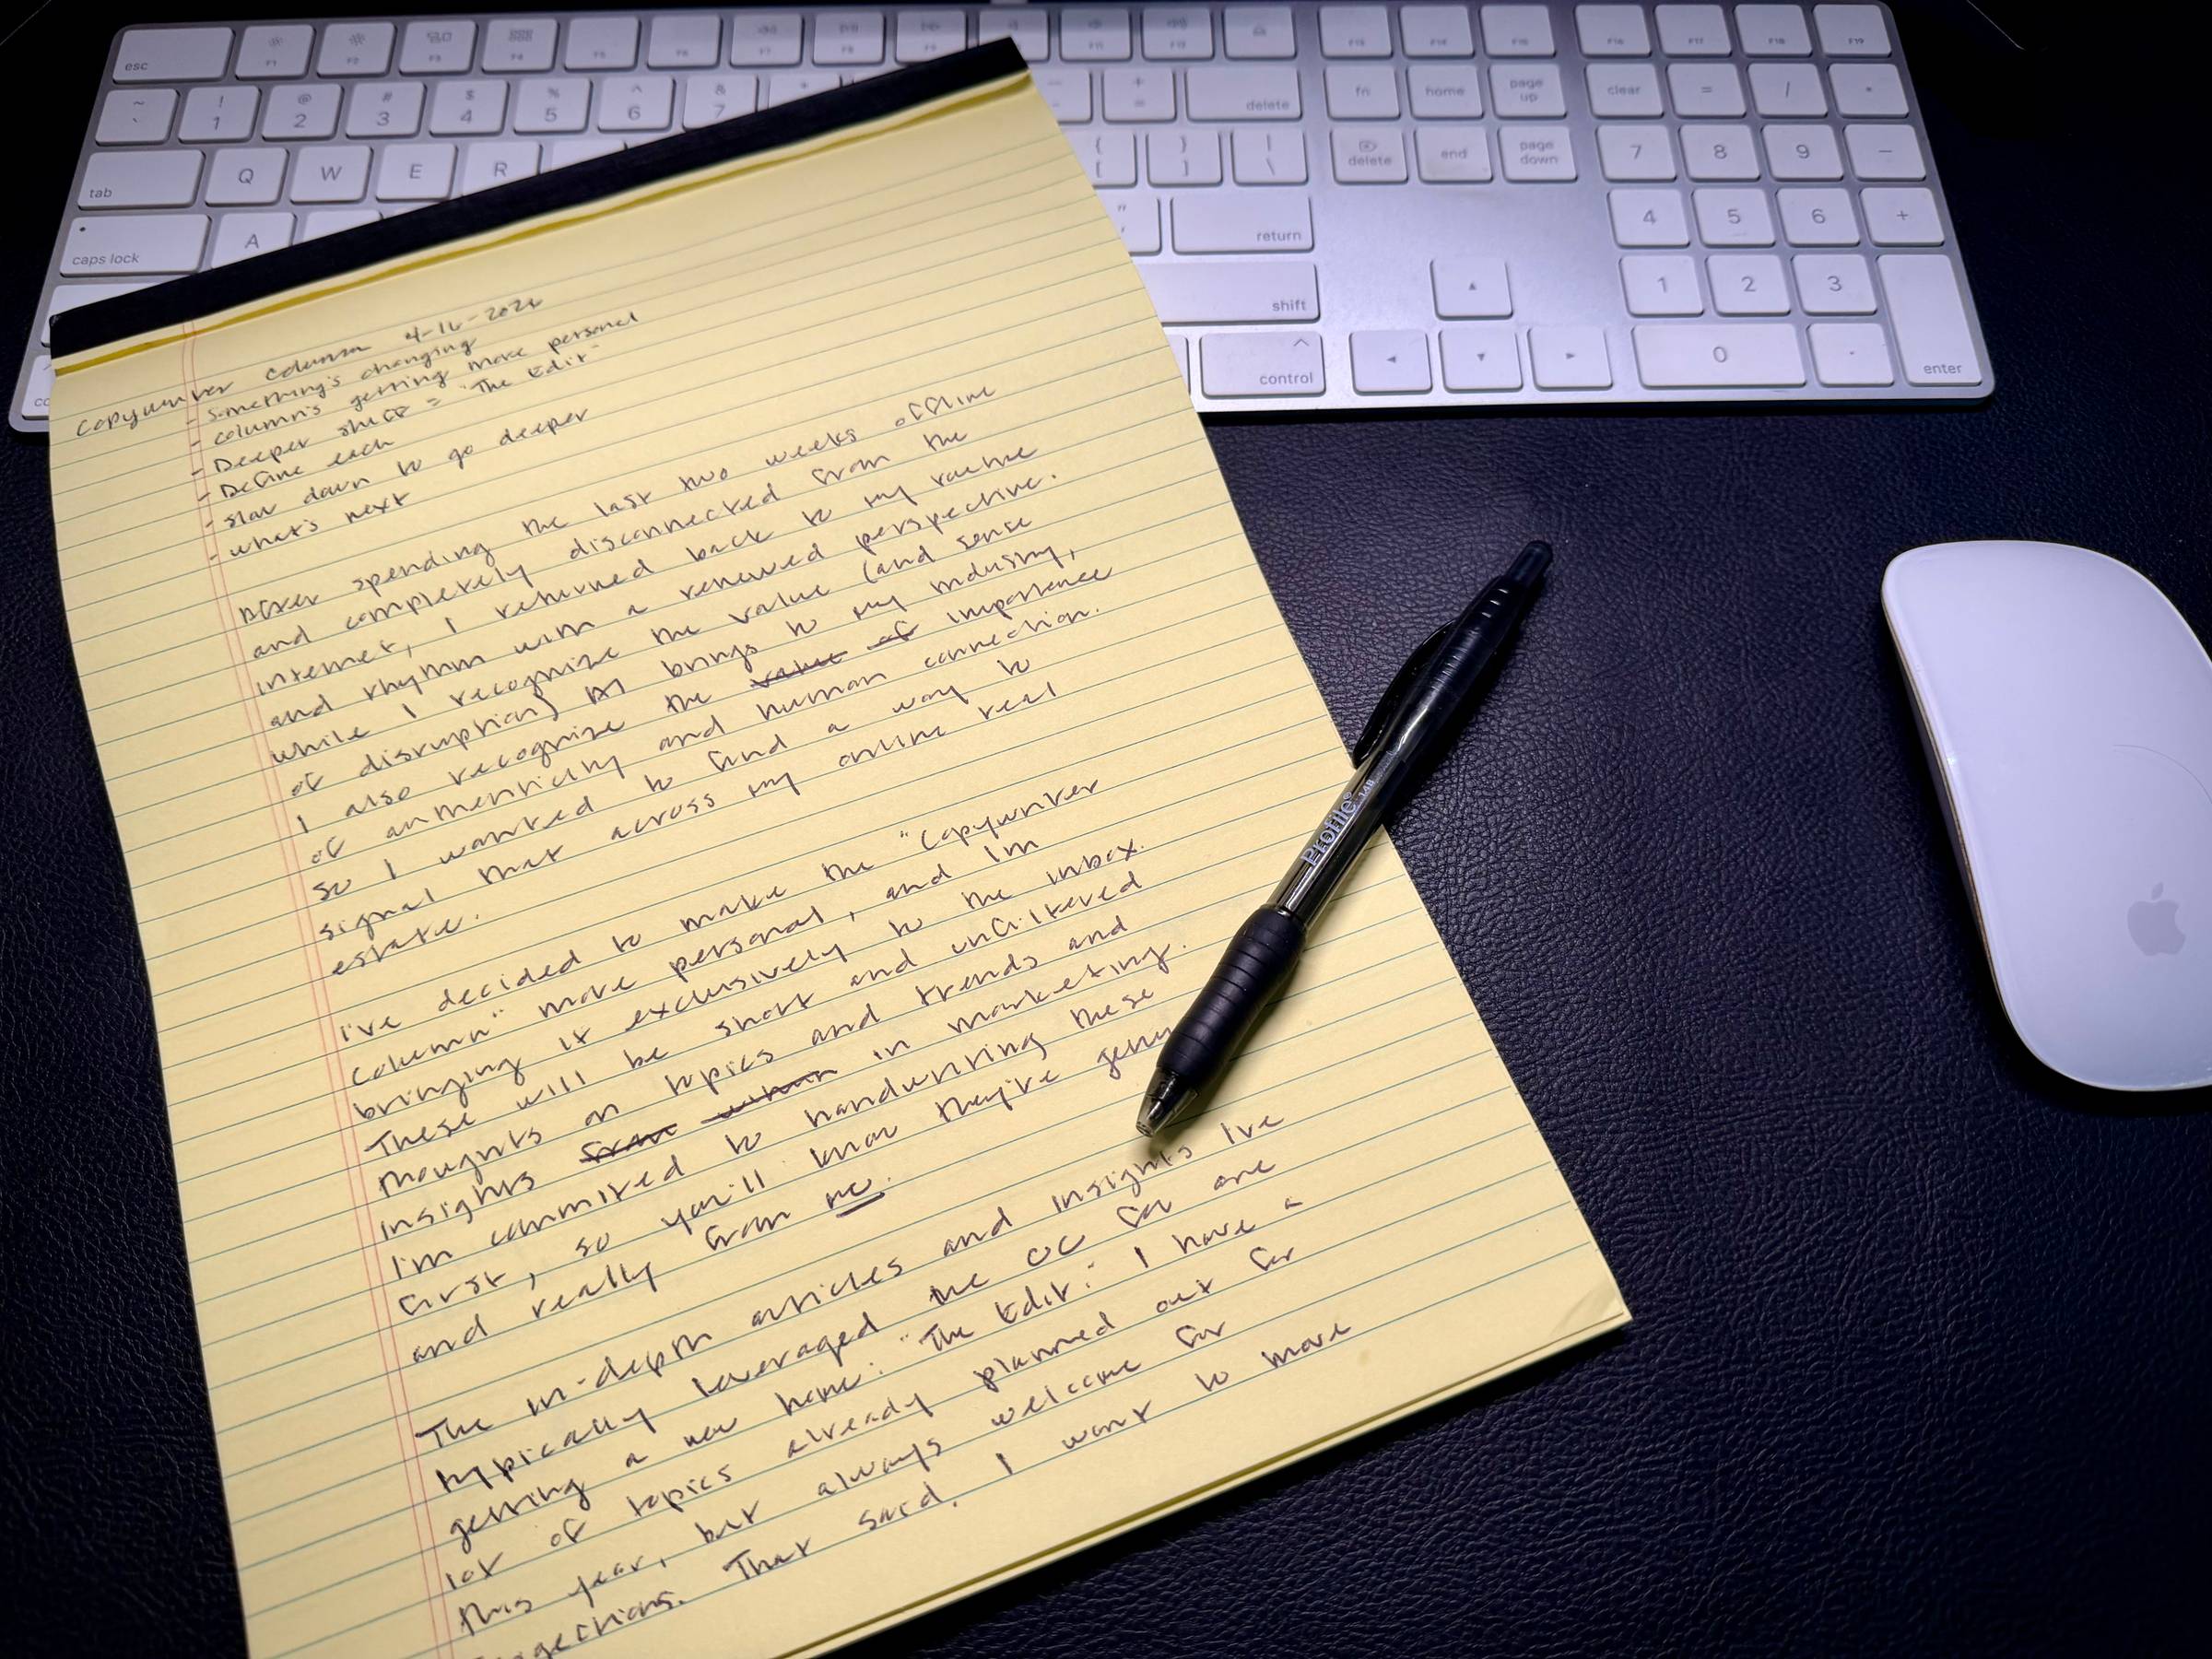 esc F1 F2 F3 F4 F5 F6 F7 F8 F9 F11 F12 F13 F14 F15 F16 F17 F18 F19
~ ` ! 1 @ 2 # 3 $ 4 % 5 ^ 6 & 7 * - + = delete fn home page up clear = / *
tab Q W E R { [ } ] | \ delete end page down 7 8 9 -
caps lock A " ' return 4 5 6 +
shift 1 2 3
control 0 . enter
Copywriter Column 4-16-2026
- Something's changing
- Column's getting more personal
- Deeper stuff = "The Edit"
- Define each
- Slow down to go deeper
- What's next
After spending the last two weeks offline
and completely disconnected from the
internet, I returned back to my routine
and rhythm with a renewed perspective.
While I recognize the value (and sense
of disruption) AI brings to my industry,
I also recognize the value of importance
of authenticity and human connection.
So I wanted to find a way to
signal that across my online real
estate.
I've decided to make the "Copywriter
Column" more personal, and I'm
bringing it exclusively to the inbox.
These will be short and unfiltered
thoughts on topics and trends and
insights from within in marketing.
I'm committed to handwriting these
first, so you'll know they're genu
and really from me.
The in-depth articles and insights I've
typically leveraged the CC for are
getting a new home: "The Edit." I have a
lot of topics already planned out for
this year, but always welcome for
gections. That said, I want to more
Profile® 1.4B